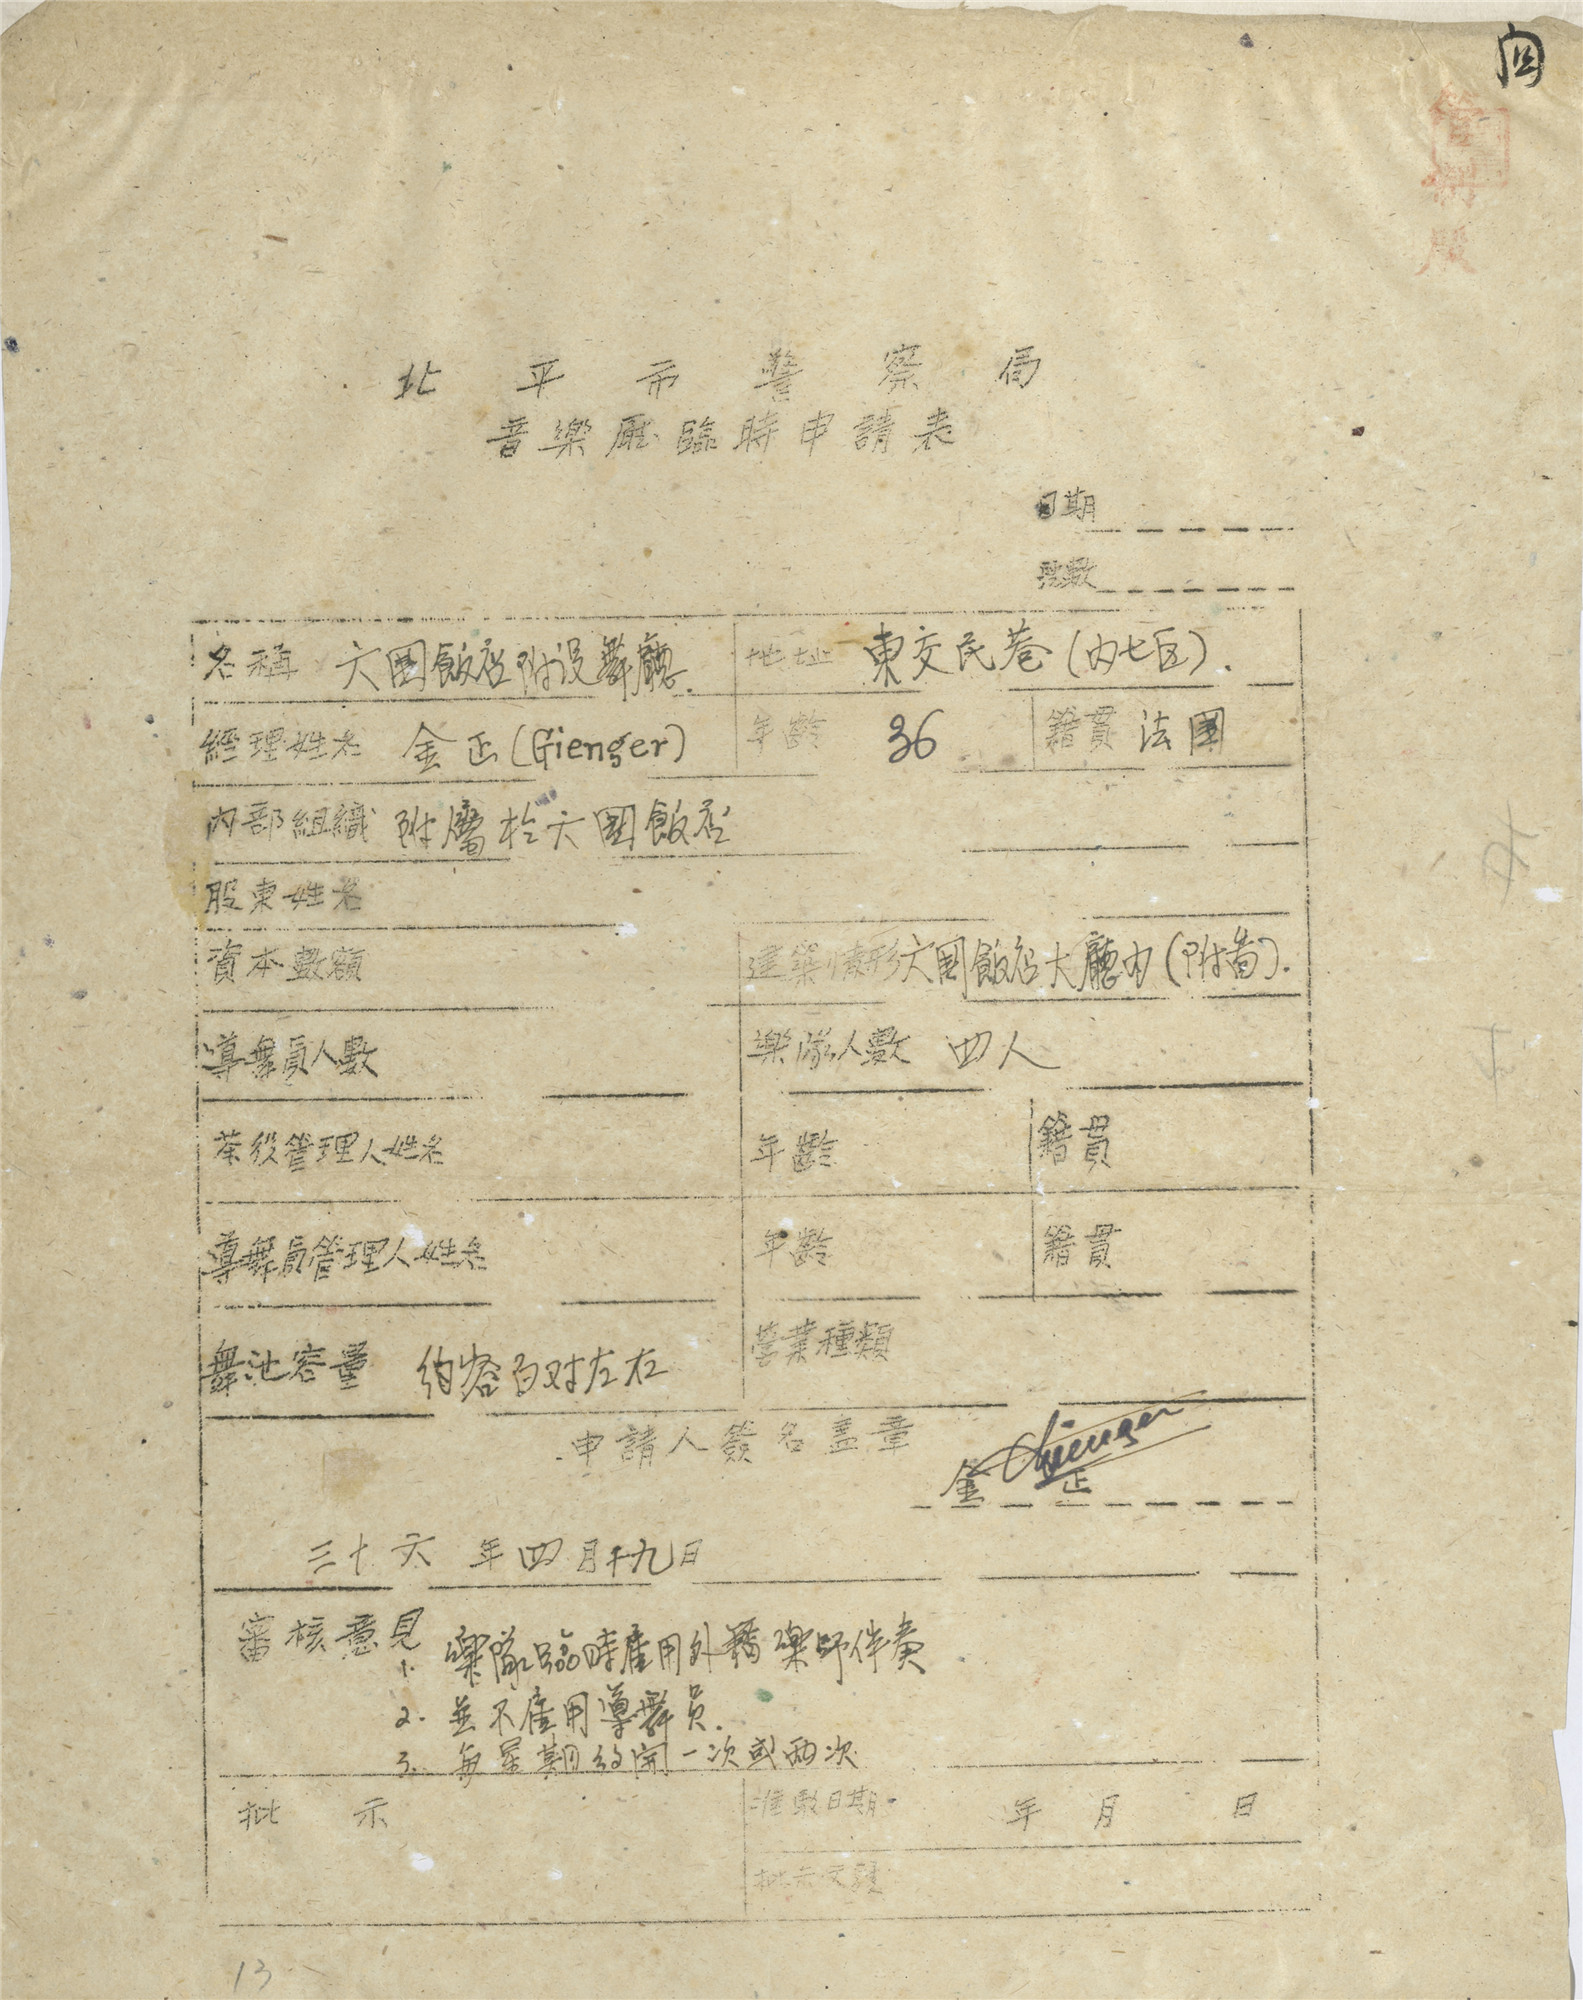 北平市警察局
音樂厛臨時申請表
日期
號數
名稱 六國飯店附設舞廳. 地址 東交民巷(内七区).
經理姓名 金正(Gienger) 年齡 36 籍貫 法國
内部組織 附屬於六國飯店
股東姓名
資本數額 建築情形 六國飯店大廳内(附啚).
導舞員人數 樂隊人數 四人
茶役管理人姓名 年齡 籍貫
導舞員管理人姓名 年齡 籍貫
舞池容量 約容百对左右 營業種類
申請人簽名盖章 金正 Gienger
三十六年四月十九日
審核意見
1. 樂隊臨時雇用外籍樂師伴奏
2. 並不雇用導舞員.
3. 每星期約開一次或兩次
批示 准駁日期 年 月 日
批示文號
13